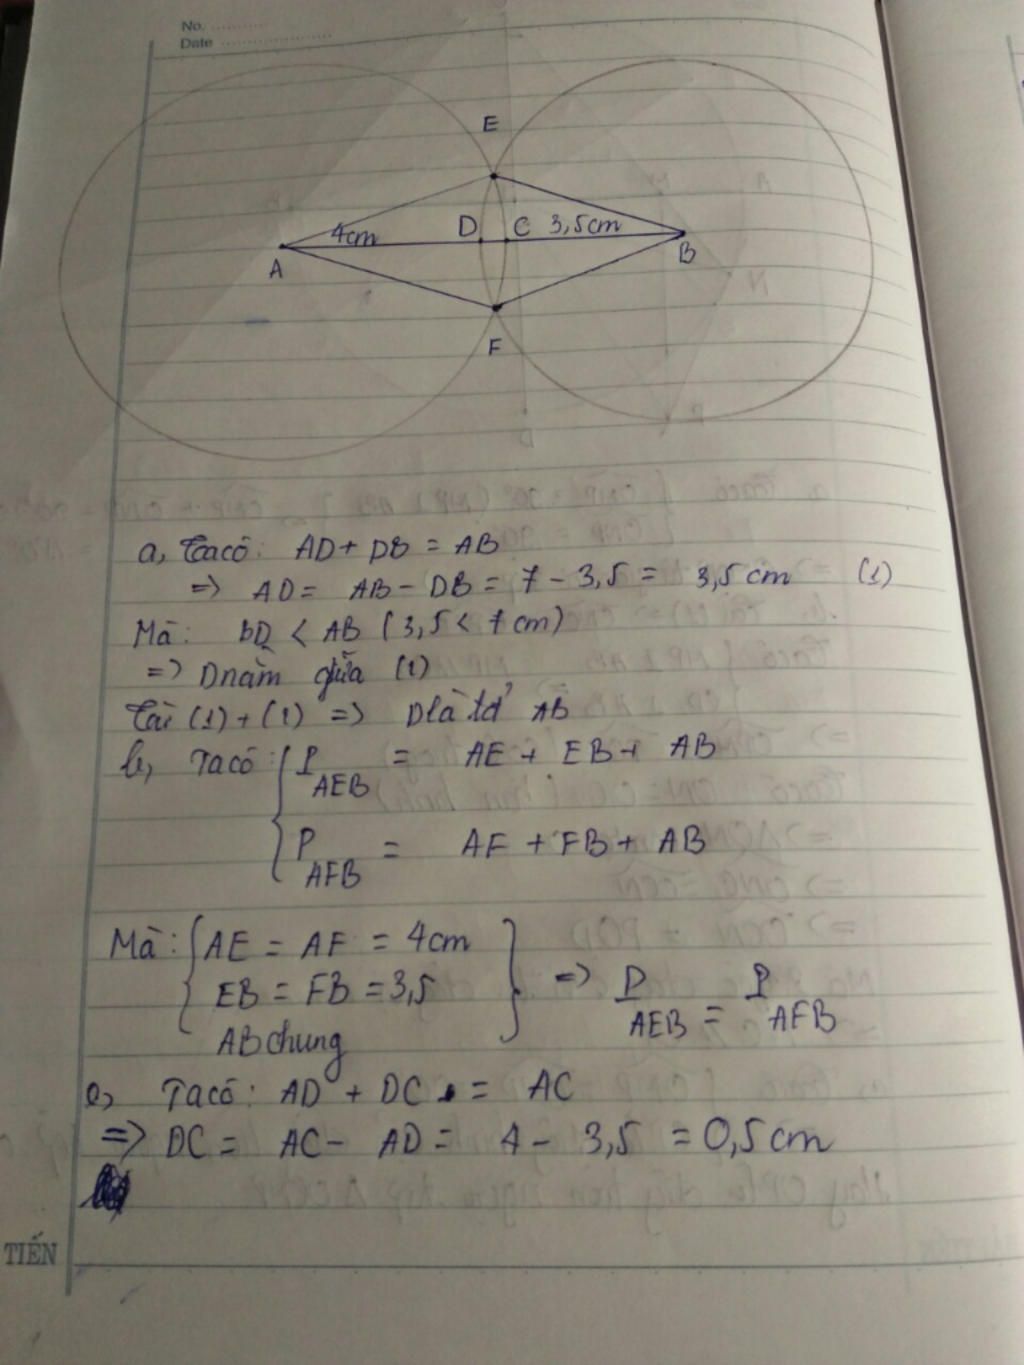 No. ..........
Date ....................
E
4cm
D
C
3,5cm
A
B
F
a, Ta có: AD + DB = AB
=> AD = AB - DB = 7 - 3,5 = 3,5 cm (1)
Mà: BD < AB (3,5 < 7 cm)
=> D nằm giữa (1)
Từ (1) + (1) => D là tđ AB
b, Ta có: { P AEB = AE + EB + AB
P AFB = AF + FB + AB
Mà: { AE = AF = 4cm
EB = FB = 3,5
AB chung } => P AEB = P AFB
c, Ta có: AD + DC = AC
=> DC = AC - AD = 4 - 3,5 = 0,5 cm
TIẾN